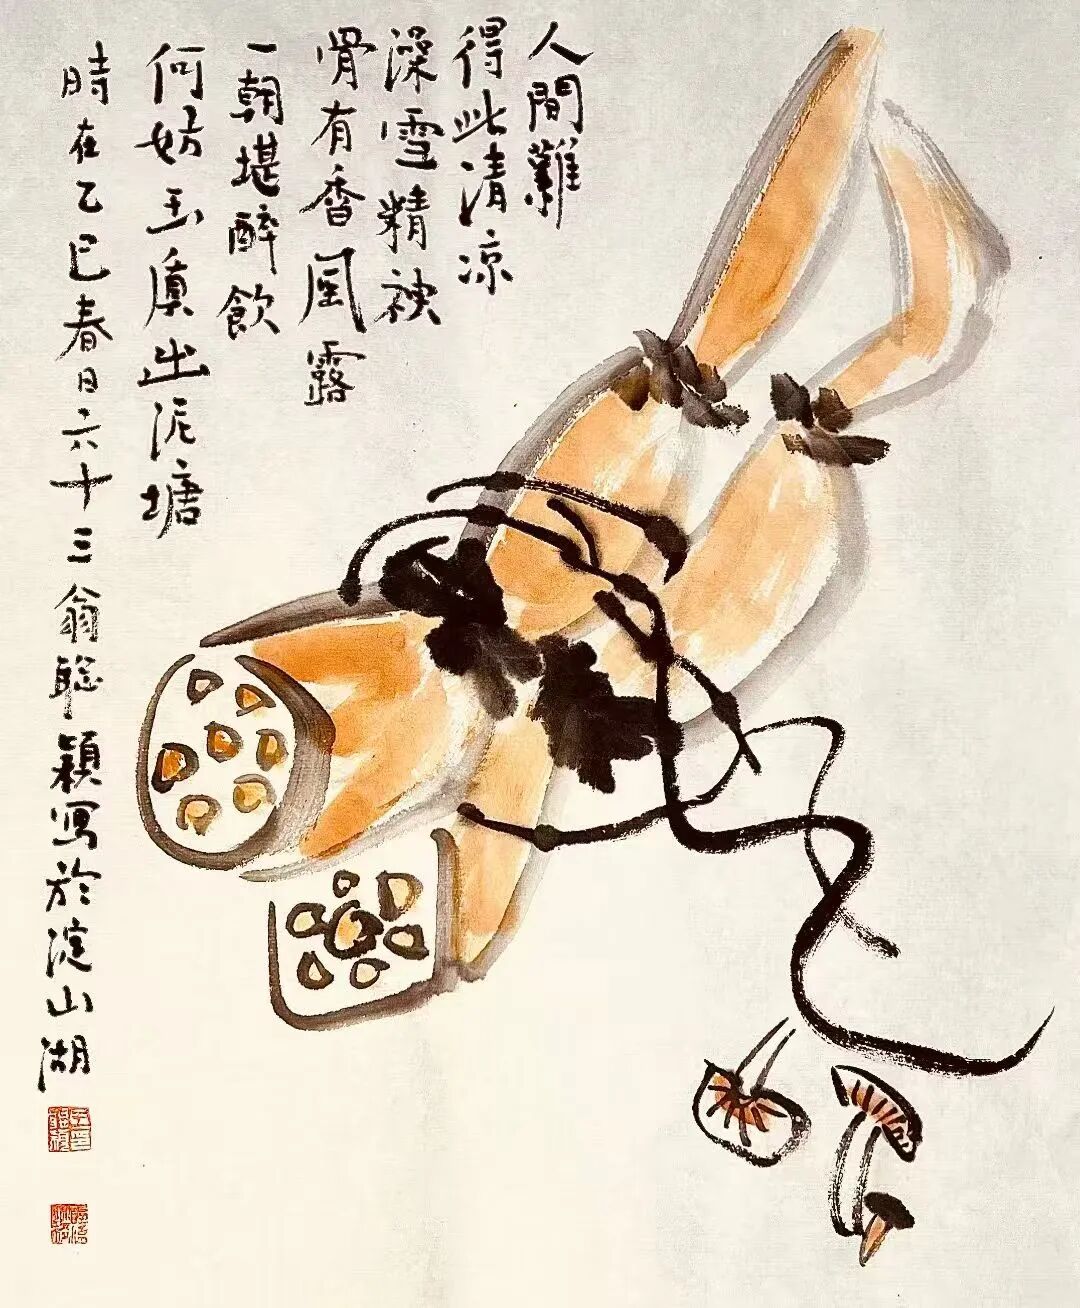 人間難
得此清凉
澡雪精神
骨有香風露
一朝堪醉飲
何妨玉質出泥塘
時在乙巳春日六十三翁聪穎写於淀山湖